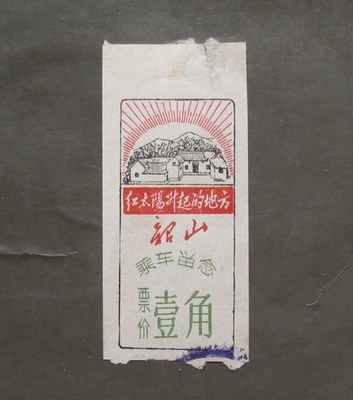 红太陽升起的地方
韶山
乘车留念
票价壹角